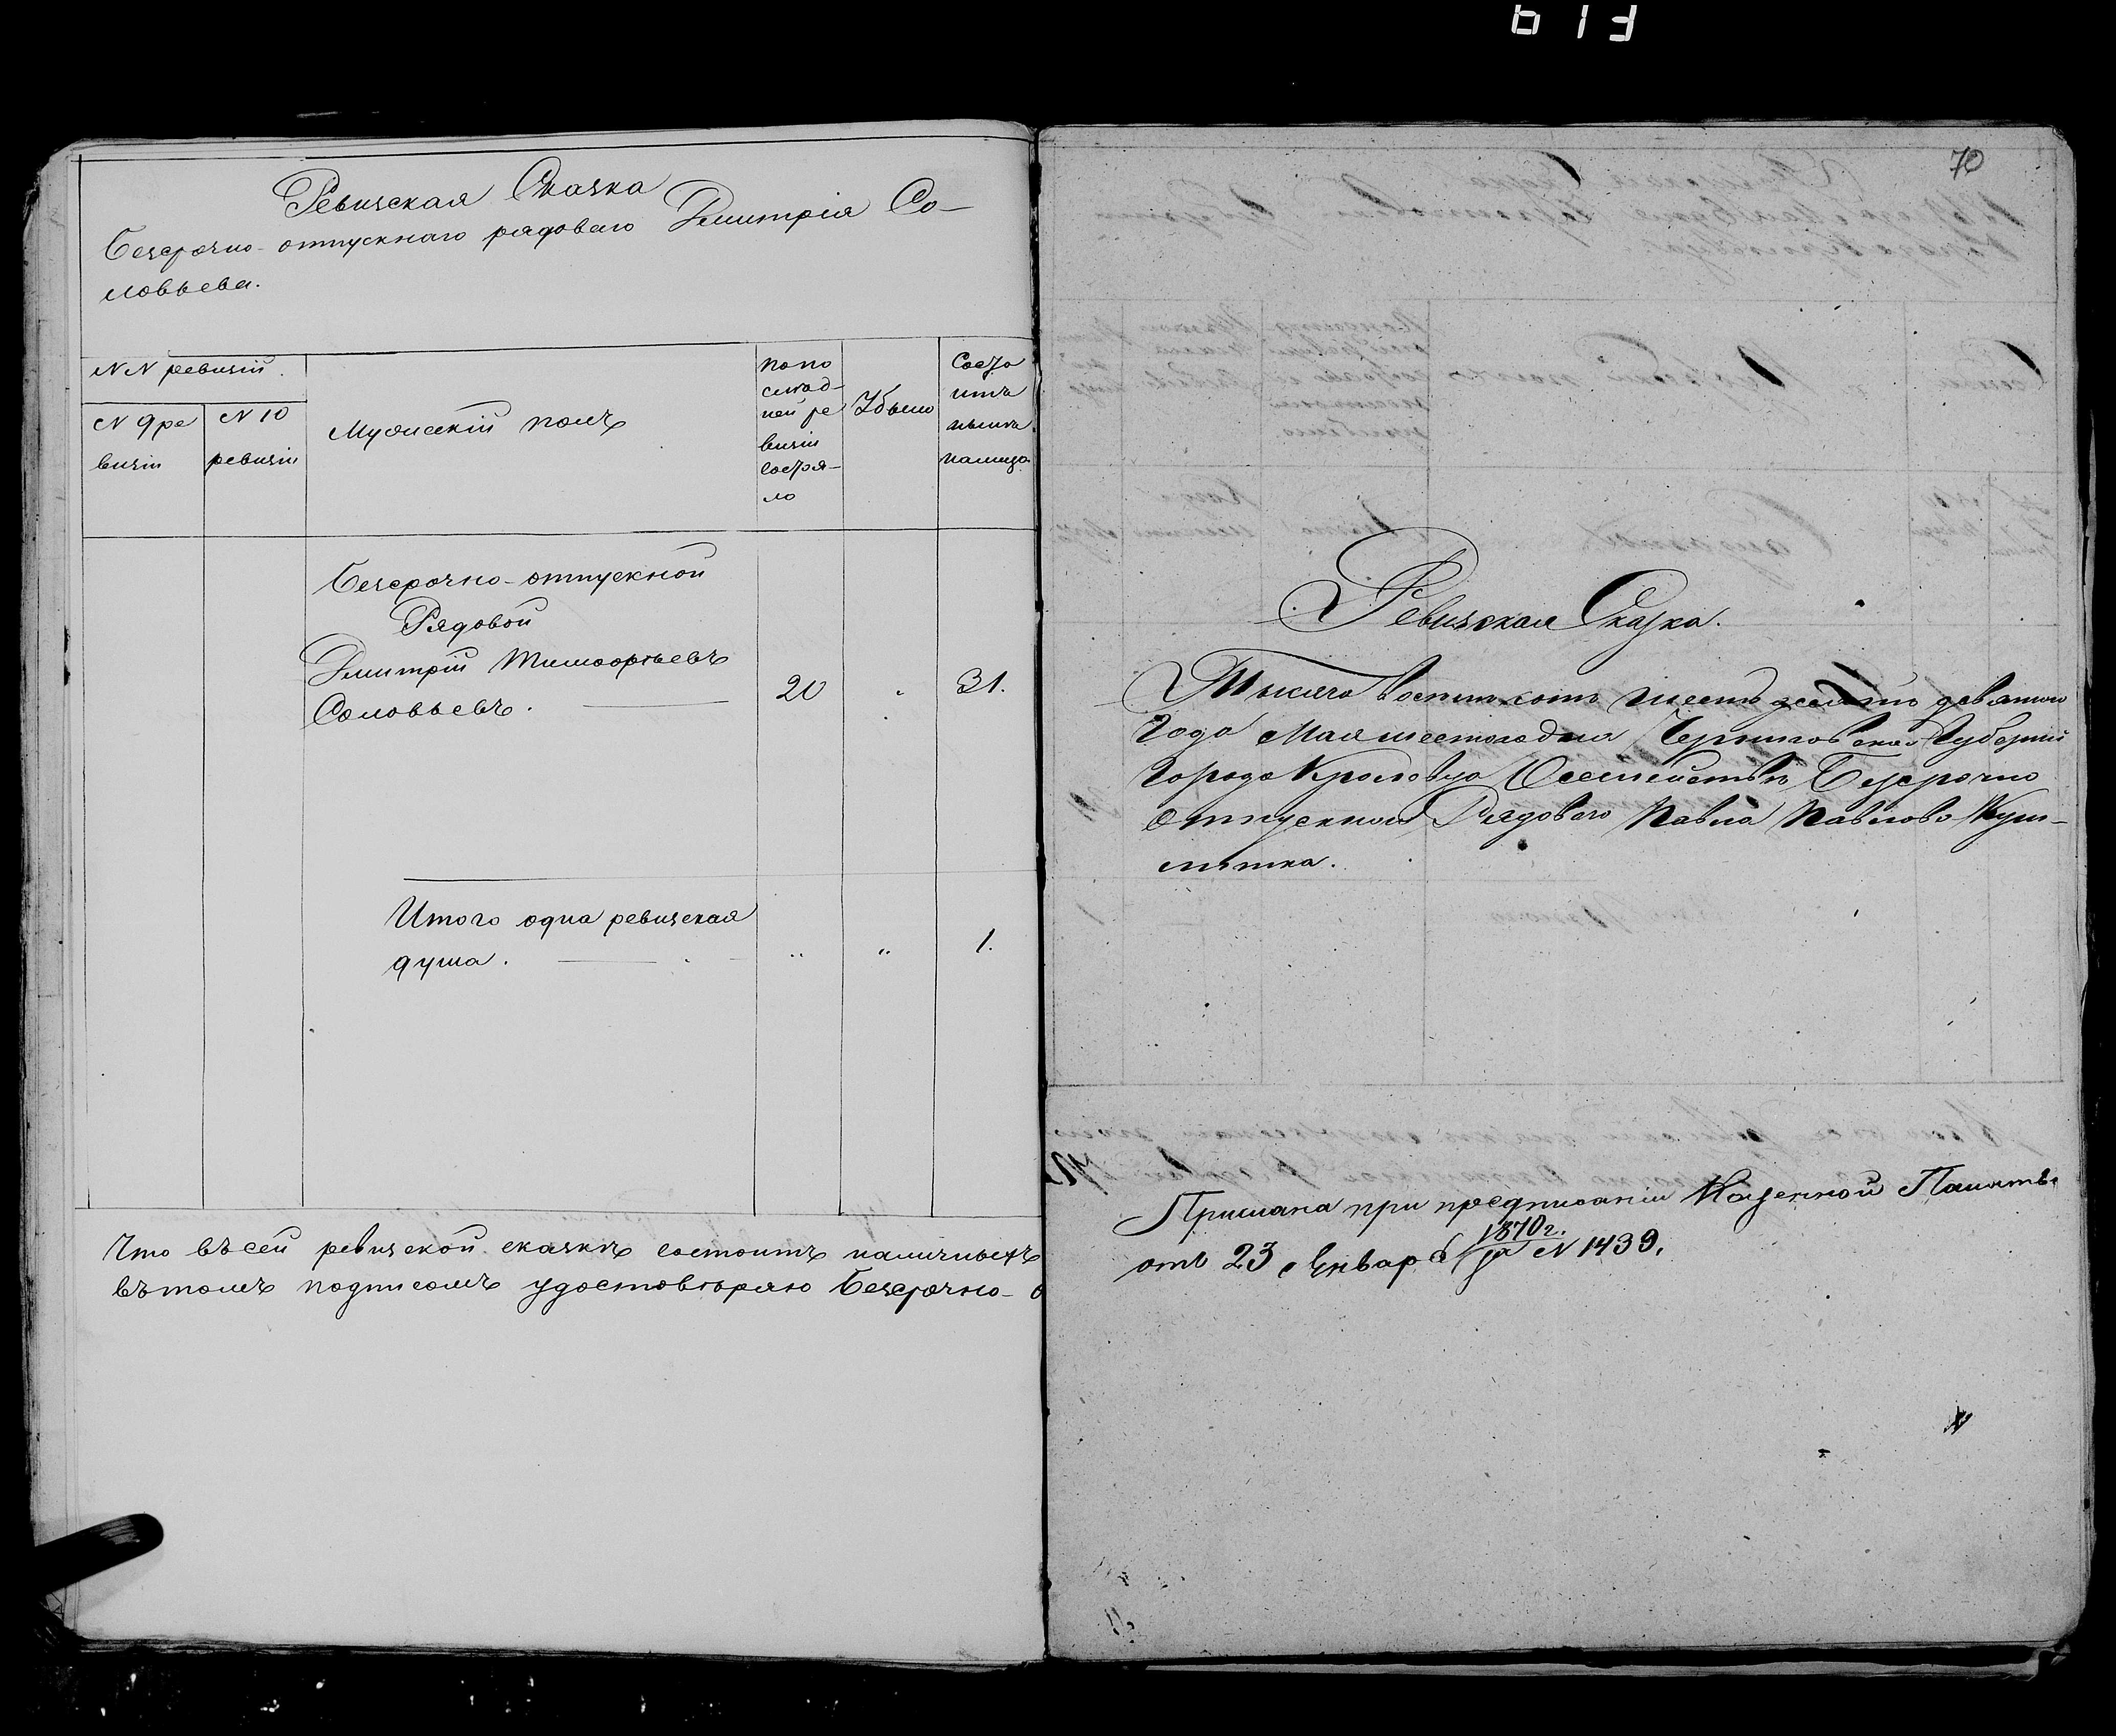 Ревизская Сказка
безсрочно-отпускнаго рядоваго Дмитрія Со-
ловьева.
NN ревизій.
N 9 ре
визіи
N 10
ревизіи
Мужескій полъ
по по
слѣд-
ней ре
визіи
состоя-
ло
Убыло
Состо
итъ
нынѣ
на лицо
Безсрочно-отпускной
Рядовой
Дмитрій Тимофѣевъ
Соловьевъ.
20
31.
Итого одна ревизская
душа.
1.
Что въ сей ревизской сказкѣ состоитъ
въ томъ подписомъ удостовѣряю безсрочно-о
70
Ревизская Сказка.
Тысяча восемьсотъ шестьдесятъ девятого
года Мая шестого дня Черниговской Губерніи
города Кролевца О семействѣ Безсрочно
Отпускного Рядового Павла Павлова
Прислана при предписаніи Казенной Палаты
отъ 23 Января 1870 г. за N 1439.
613